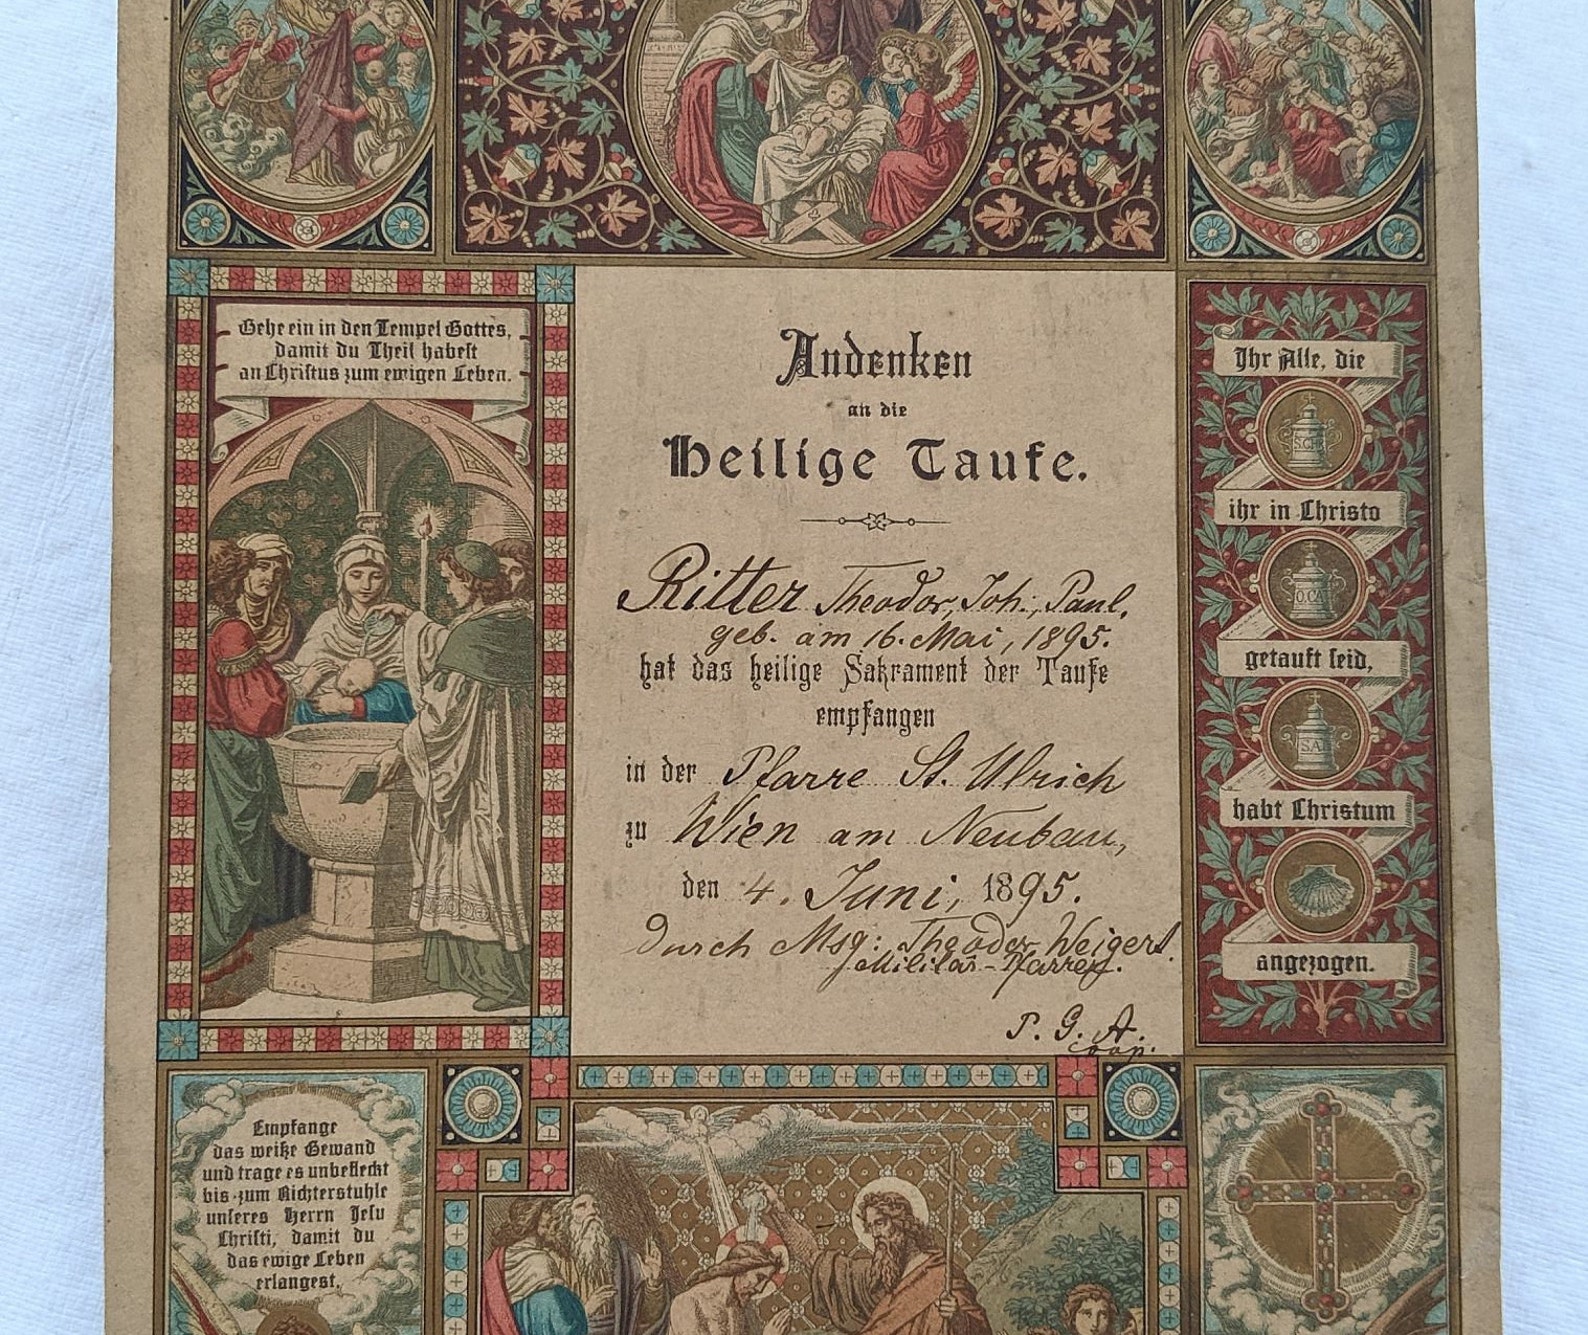 Gehe ein in den Tempel Gottes,
damit du Theil habest
an Christus zum ewigen Leben.
Andenken
an die
Heilige Taufe.
Ritter Theodor, Joh., Paul.
geb. am 16. Mai, 1895.
hat das heilige Sakrament der Taufe
empfangen
in der Pfarre St. Ulrich
zu Wien am Neubau,
den 4. Juni, 1895.
Durch Msg: Theodor Weigert.
Militär-Pfarrer.
P. G. A.
coop.
Ihr Alle, die
S.CHR
ihr in Christo
O.CA
getauft seid,
S.A
habt Christum
angezogen.
Empfange
das weiße Gewand
und trage es unbefleckt
bis zum Richterstuhle
unseres Herrn Jesu
Christi, damit du
das ewige Leben
erlangest.